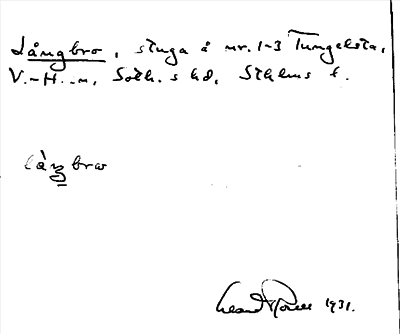 Långbro, stuga å nr. 1-3 Tungelsta,
V.-H.-n, Soth. s hd, Sthlms l.
làŋbrω
1931.